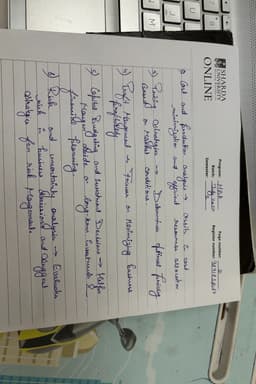 SHARDA
UNIVERSITY
ONLINE
Program:
Date:
Semester:
Page number:
Register number:
2) Cost and production analysis → Assists in cost
minimization and efficient resource allocation
3) Pricing strategies → Determine optimal pricing
based on market conditions.
4) Profit Management → Focuses on Maximizing business
profitability
5) Capital Budgeting and investment Decisions → Helps
Managers decide on long-term investments &
financial planning.
6) Risk and uncertainty analysis → Evaluates
risk in business decisions and suggest
strategies for risk Management.